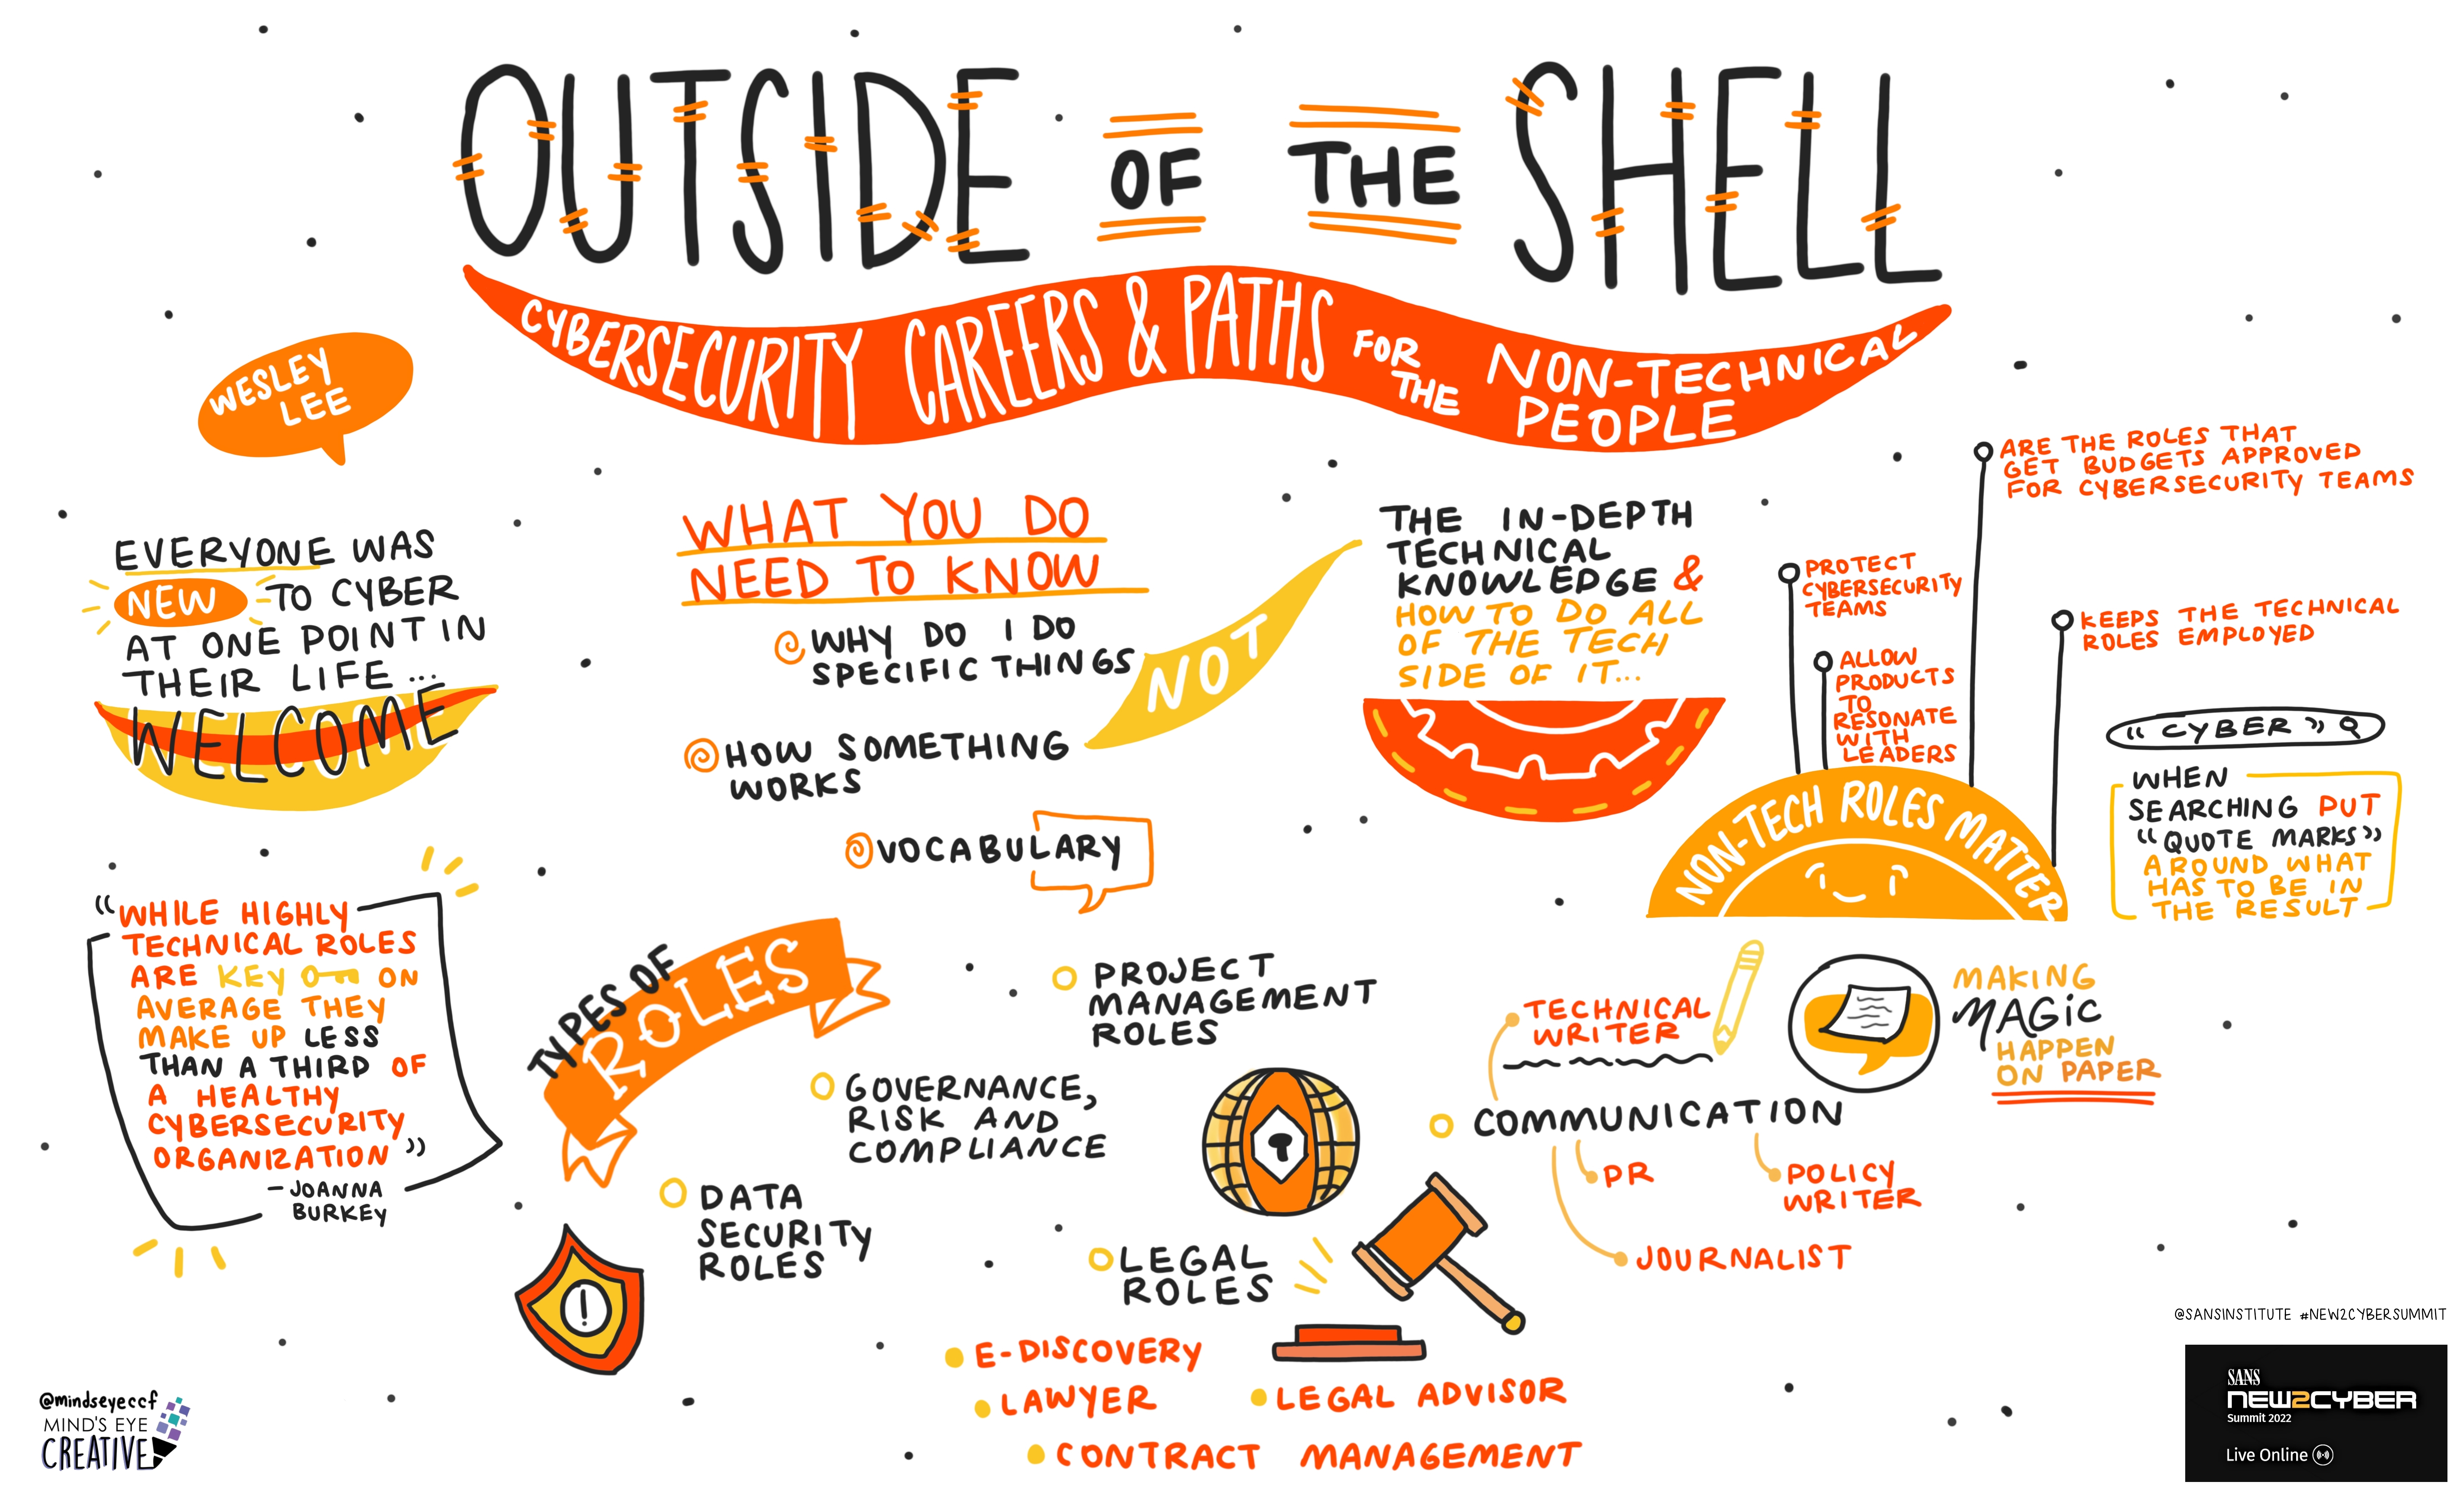 OUTSIDE OF THE SHELL
CYBERSECURITY CAREERS & PATHS FOR THE NON-TECHNICAL PEOPLE
WESLEY
LEE
EVERYONE WAS
NEW TO CYBER
AT ONE POINT IN
THEIR LIFE...
WELCOME
WHAT YOU DO
NEED TO KNOW
WHY DO I DO
SPECIFIC THINGS
HOW SOMETHING
WORKS
VOCABULARY
NOT
THE IN-DEPTH
TECHNICAL
KNOWLEDGE &
HOW TO DO ALL
OF THE TECH
SIDE OF IT...
ARE THE ROLES THAT
GET BUDGETS APPROVED
FOR CYBERSECURITY TEAMS
PROTECT
CYBERSECURITY
TEAMS
ALLOW
PRODUCTS
TO
RESONATE
WITH
LEADERS
KEEPS THE TECHNICAL
ROLES EMPLOYED
NON-TECH ROLES MATTER
"CYBER"
WHEN
SEARCHING PUT
"QUOTE MARKS"
AROUND WHAT
HAS TO BE IN
THE RESULT
"WHILE HIGHLY
TECHNICAL ROLES
ARE KEY ON
AVERAGE THEY
MAKE UP LESS
THAN A THIRD OF
A HEALTHY
CYBERSECURITY
ORGANIZATION"
- JOANNA
BURKEY
TYPES OF
ROLES
PROJECT
MANAGEMENT
ROLES
GOVERNANCE,
RISK AND
COMPLIANCE
DATA
SECURITY
ROLES
LEGAL
ROLES
E-DISCOVERY
LAWYER
LEGAL ADVISOR
CONTRACT MANAGEMENT
TECHNICAL
WRITER
COMMUNICATION
PR
POLICY
WRITER
JOURNALIST
MAKING
MAGIC
HAPPEN
ON PAPER
@SANSINSTITUTE #NEW2CYBERSUMMIT
SANS
NEW2CYBER
Summit 2022
Live Online
@mindseyeccf
MIND'S EYE
CREATIVE